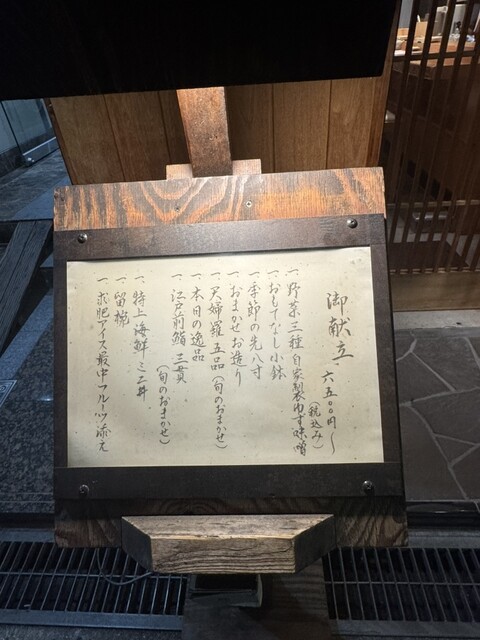 御献立 六五〇〇円〜
(税込み)
一、野菜三種 自家製ゆず味噌
一、おもてなし小鉢
一、季節の先八寸
一、おまかせお造り
一、天婦羅五品(旬のおまかせ)
一、本日の逸品
一、江戸前鮨 三貫
(旬のおまかせ)
一、特上海鮮ミニ丼
一、留椀
一、求肥アイス最中フルーツ添え